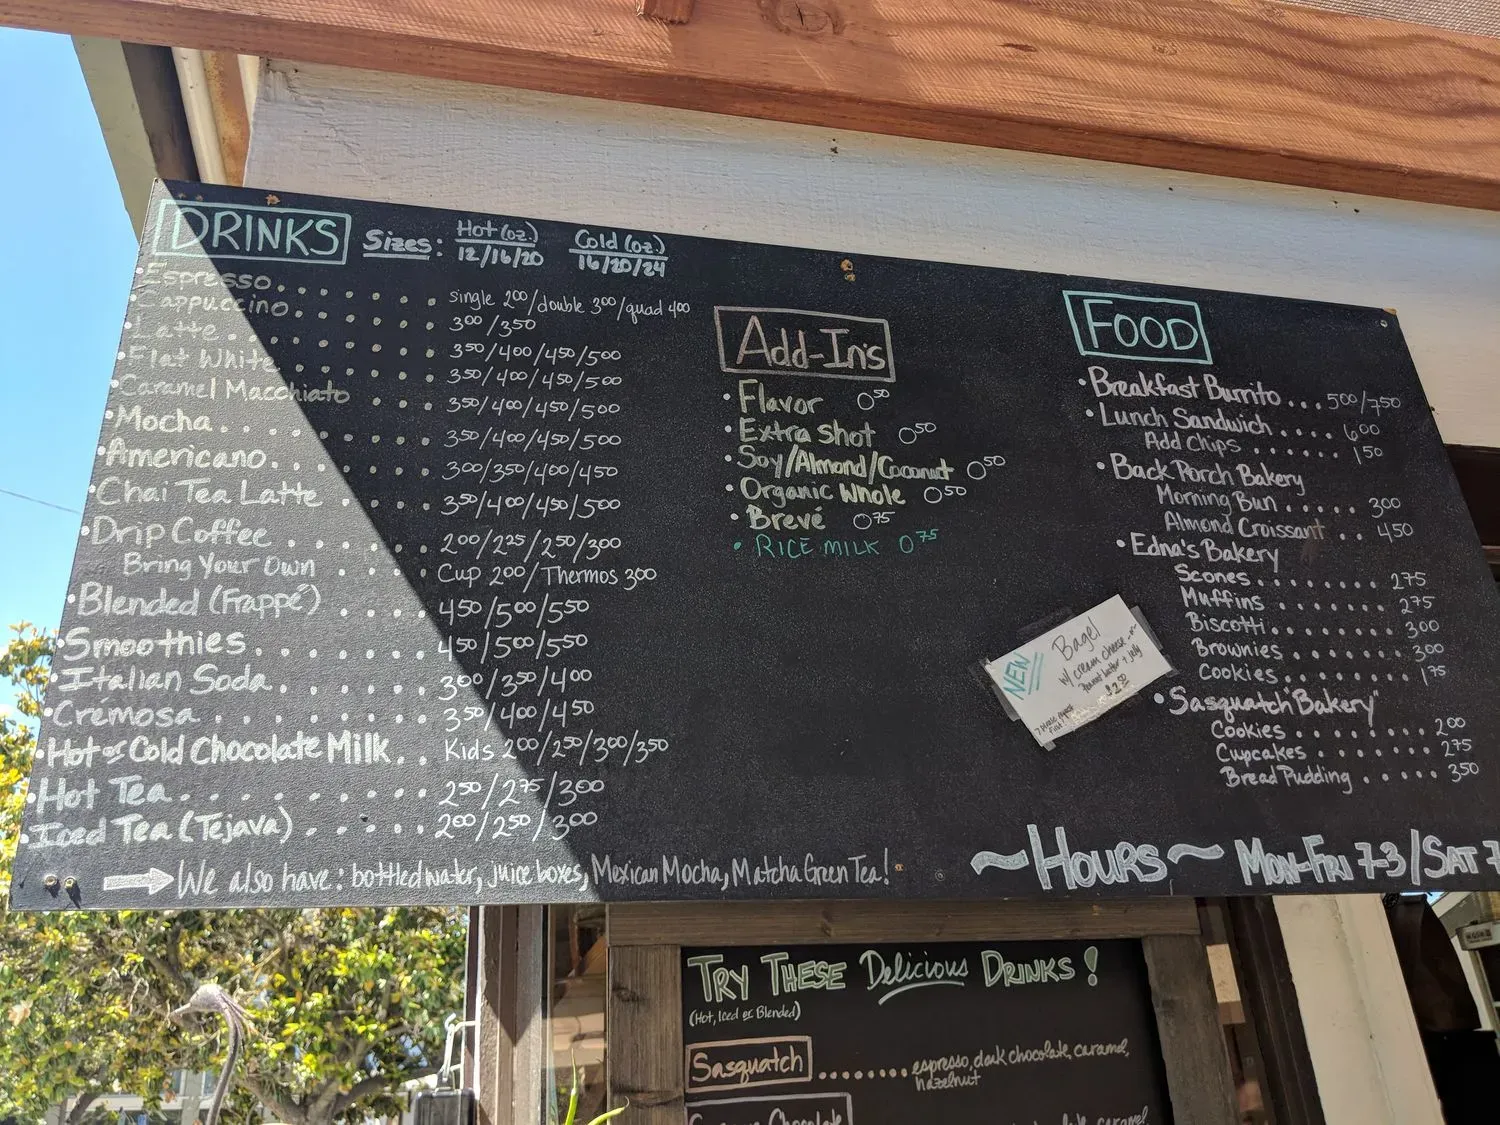 DRINKS Sizes: Hot (oz.) 12/16/20 Cold (oz.) 16/20/24
•Espresso........ single 2⁰⁰/double 3⁰⁰/quad 4⁰⁰
•Cappuccino...... 3⁰⁰/3⁵⁰
•Latte........ 3⁵⁰/4⁰⁰/4⁵⁰/5⁰⁰
•Flat White...... 3⁵⁰/4⁰⁰/4⁵⁰/5⁰⁰
•Caramel Macchiato... 3⁵⁰/4⁰⁰/4⁵⁰/5⁰⁰
•Mocha........ 3⁵⁰/4⁰⁰/4⁵⁰/5⁰⁰
•Americano....... 3⁰⁰/3⁵⁰/4⁰⁰/4⁵⁰
•Chai Tea Latte.... 3⁵⁰/4⁰⁰/4⁵⁰/5⁰⁰
•Drip Coffee...... 2⁰⁰/2²⁵/2⁵⁰/3⁰⁰
Bring Your Own.... Cup 2⁰⁰/Thermos 3⁰⁰
•Blended (Frappé).... 4⁵⁰/5⁰⁰/5⁵⁰
•Smoothies....... 4⁵⁰/5⁰⁰/5⁵⁰
•Italian Soda...... 3⁰⁰/3⁵⁰/4⁰⁰
•Crémosa........ 3⁵⁰/4⁰⁰/4⁵⁰
•Hot or Cold Chocolate Milk.. Kids 2⁰⁰/2⁵⁰/3⁰⁰/3⁵⁰
•Hot Tea......... 2⁵⁰/2⁷⁵/3⁰⁰
•Iced Tea (Tejava)..... 2⁰⁰/2⁵⁰/3⁰⁰
→ We also have: bottled water, juice boxes, Mexican Mocha, Matcha Green Tea!
Add-Ins
•Flavor 0⁵⁰
•Extra Shot 0⁵⁰
•Soy/Almond/Coconut 0⁵⁰
•Organic Whole 0⁵⁰
•Brevé 0⁷⁵
•RICE MILK 0⁷⁵
FOOD
•Breakfast Burrito...5⁰⁰/7⁵⁰
•Lunch Sandwich.... 6⁰⁰
Add Chips...... 1⁵⁰
•Back Porch Bakery
Morning Bun..... 3⁰⁰
Almond Croissant.. 4⁵⁰
•Edna's Bakery
Scones........ 2⁷⁵
Muffins....... 2⁷⁵
Biscotti....... 3⁰⁰
Brownies...... 3⁰⁰
Cookies....... 1⁷⁵
•Sasquatch "Bakery"
Cookies....... 2⁰⁰
Cupcakes...... 2⁷⁵
Bread Pudding..... 3⁵⁰
NEW
Bagel
w/ cream cheese or
Peanut butter + jelly
$2.50
~HOURS~ MON-FRI 7-3/SAT 7
TRY THESE Delicious DRINKS!
(Hot, Iced or Blended)
Sasquatch........ espresso, dark chocolate, caramel,
hazelnut
Chocolate
caramel